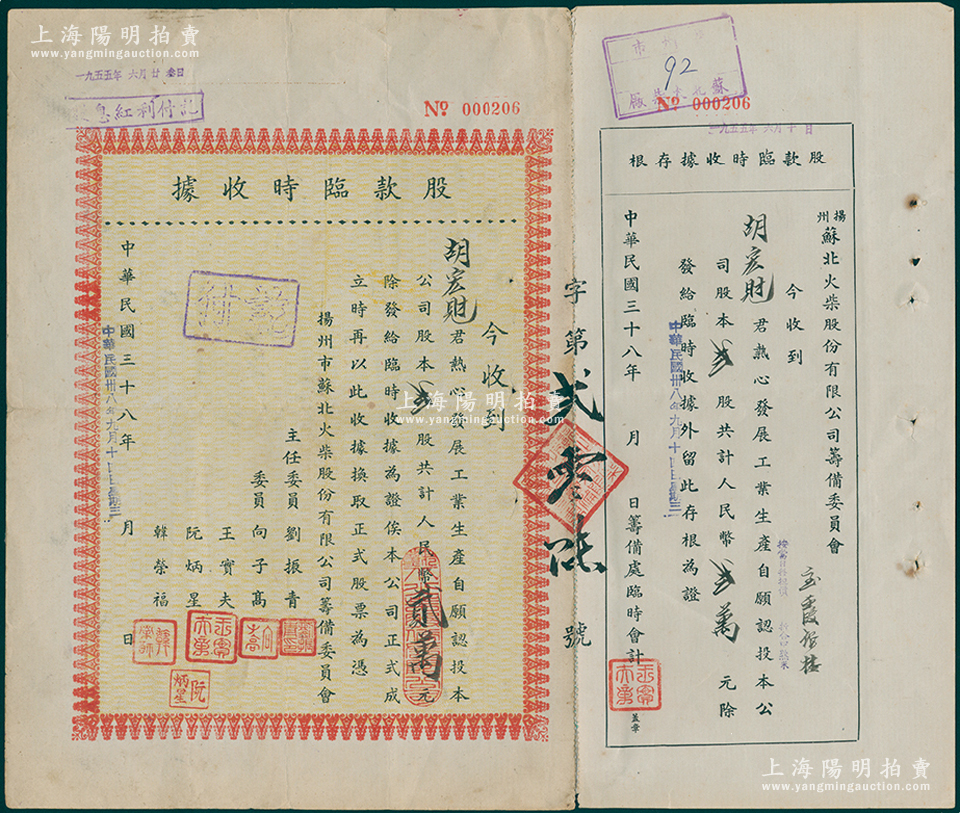 上海陽明拍賣
www.yangmingauction.com
一九五五年 六月 廿 叁日
訖付利紅息
No 000206
股款臨時收據
今收到
胡宏財 君熱心發展工業生產自願認投本
公司股本 弍 股共計人民幣 貳萬 元
除發給臨時收據為證俟本公司正式成
立時再以此收據換取正式股票為憑
揚州市蘇北火柴股份有限公司籌備委員會
主任委員 劉振青
委員 向子高
王實夫
阮炳星
韓榮福
中華民國三十八年 月 日
中華民國卅八年九月十四日星期三
訖付
字第 弍零陸 號
上海陽明拍賣
www.yangmingauction.com
92
No 000206
一九五五年六月十日
股款臨時收據存根
揚州 蘇北火柴股份有限公司籌備委員會
今收到
胡宏財 君熱心發展工業生產自願認投本公
司股本 弍 股共計人民幣 弍萬 元除
發給臨時收據外留此存根為證
中華民國三十八年 月 日籌備處臨時會計
蓋章
中華民國卅八年九月十四日星期三
上海陽明拍賣
www.yangmingauction.com